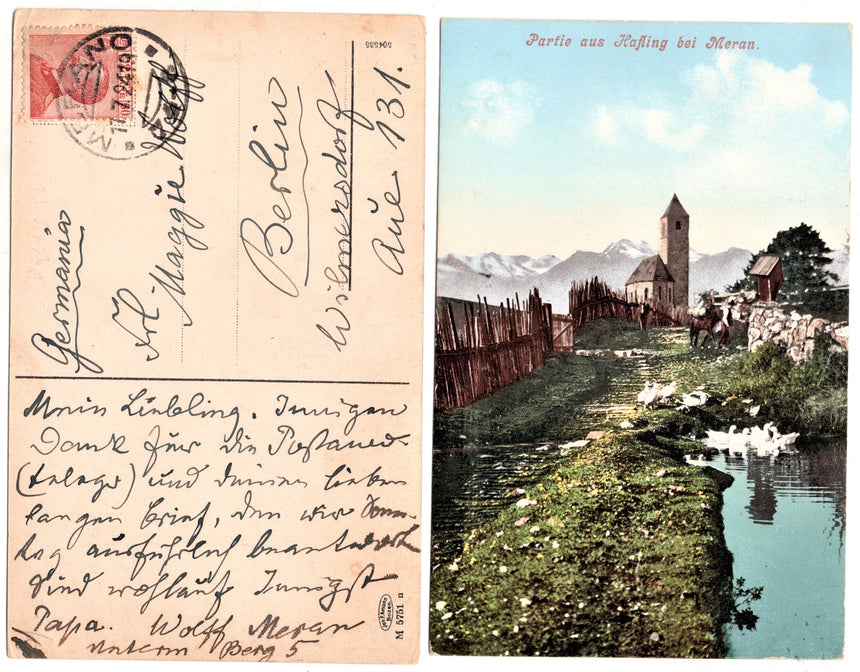 504535
MERANO
11.7.24 19
Germania
Frl. Maggie Wolff
Berlin
Wilmersdorf
Aue 131.
Mein Liebling. Innigen
Dank für die
(telegr) und deinen lieben
langen Brief, den wir Sonn-
tag ausführlich beantworten
Sind wohlauf Innigst
Papa. Wolff Meran
Unterm Berg 5
M 5751 n
Partie aus Hafling bei Meran.